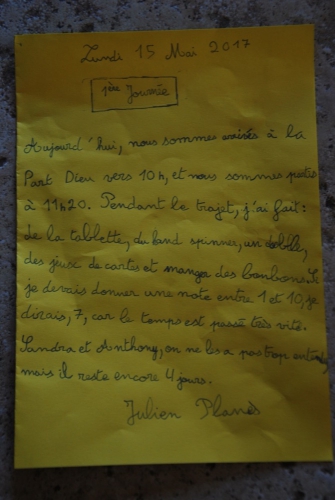 Lundi 15 Mai 2017
1ère Journée
Aujourd'hui, nous sommes arrivés à la
Part Dieu vers 10h, et nous sommes partis
à 11h20. Pendant le trajet, j'ai fait:
de la tablette, du hand spinner, un
des jeux de cartes et manger des bonbons. Si
je devais donner une note entre 1 et 10, je
dirais, 7, car le temps est passé très vite.
Sandra et Anthony, on ne les a pas trop
mais il reste encore 4 jours.
Julien Planès